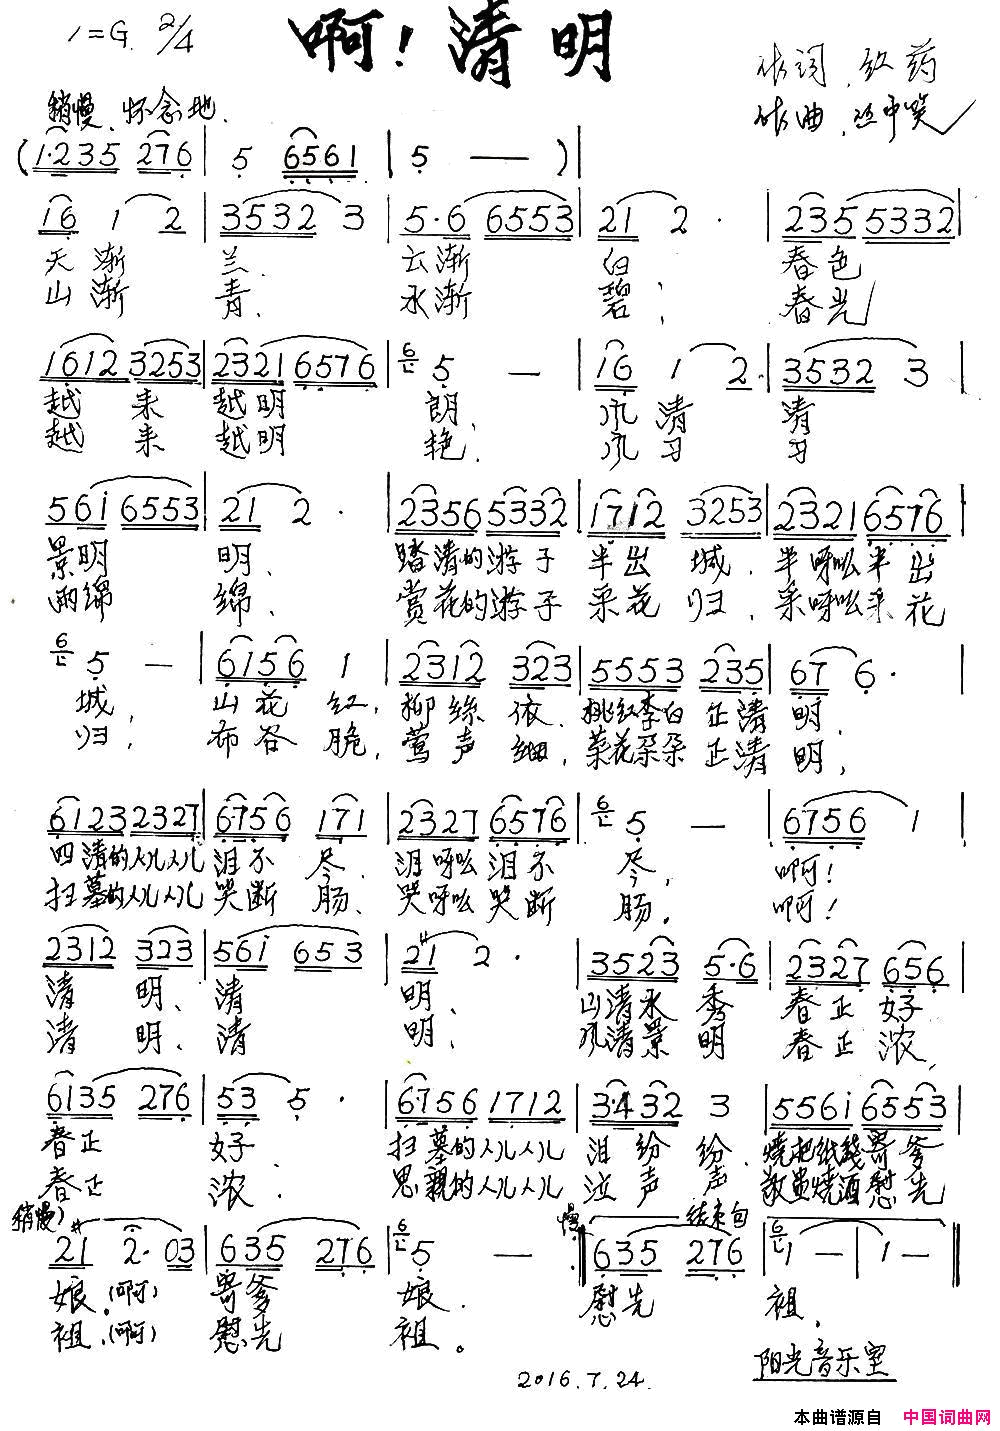 1=G 2/4
啊！清明
作词 红药
作曲
稍慢 怀念地
(1·235 276 | 5 6561 | 5 — — )|
16 1 2 | 3532 3 | 5·6 6553 | 21 2 · | 235 5332 |
天渐 兰 云渐 白 春色
山渐 青、 水渐 碧， 春光
1612 3253 | 2321 6576 | 5 — | 16 1 2· | 3532 3 |
越来 越明 朗， 风清 清
越来 越明 艳、 风习 习
561 6553 | 21 2 · | 2356 5332 | 1712 3253 | 2321 6576 |
景明 明、 踏清的游子 半出 城、 半呀么半出
雨绵 绵、 赏花的游子 采花 归、 采呀么采花
5 — | 6156 1 | 2312 323 | 5553 235 | 67 6 · |
城， 山花 红， 柳丝 依、 桃红李白 正清 明、
归， 布谷 脆， 莺声 细、 菜花朵朵 正清 明，
6123 2327 | 6·756 171 | 2327 6576 | 5 — | 6756 1 |
的人儿人儿 泪不 尽、 泪呀么泪不 尽， 啊！
扫墓的人儿人儿 哭断 肠、 哭呀么哭断 肠。 啊！
2312 323 | 561 653 | 21 2 · | 3523 5·6 | 2327 656 |
清 明、 清 明、 山清水秀 春正 好
清 明、 清 明、 风清景明 春正 浓，
6135 276 | 53 5 · | 6·756 1712 | 3·432 3 | 5561 6553 |
春正 好 扫墓的人儿人儿 泪纷 纷、 烧把纸钱寄爹
春正 浓． 思親的人儿人儿 泣声 声 烧酒慰先
稍慢
慢 结束句
21 2· 03 | 635 276 | 5 — | 635 276 | 1 — | 1 — |
娘。(啊) 寄爹 娘． 慰先 祖．
祖．(啊) 慰先 祖。
阳光音乐室
2016.7.24.
本曲谱源自 中国词曲网